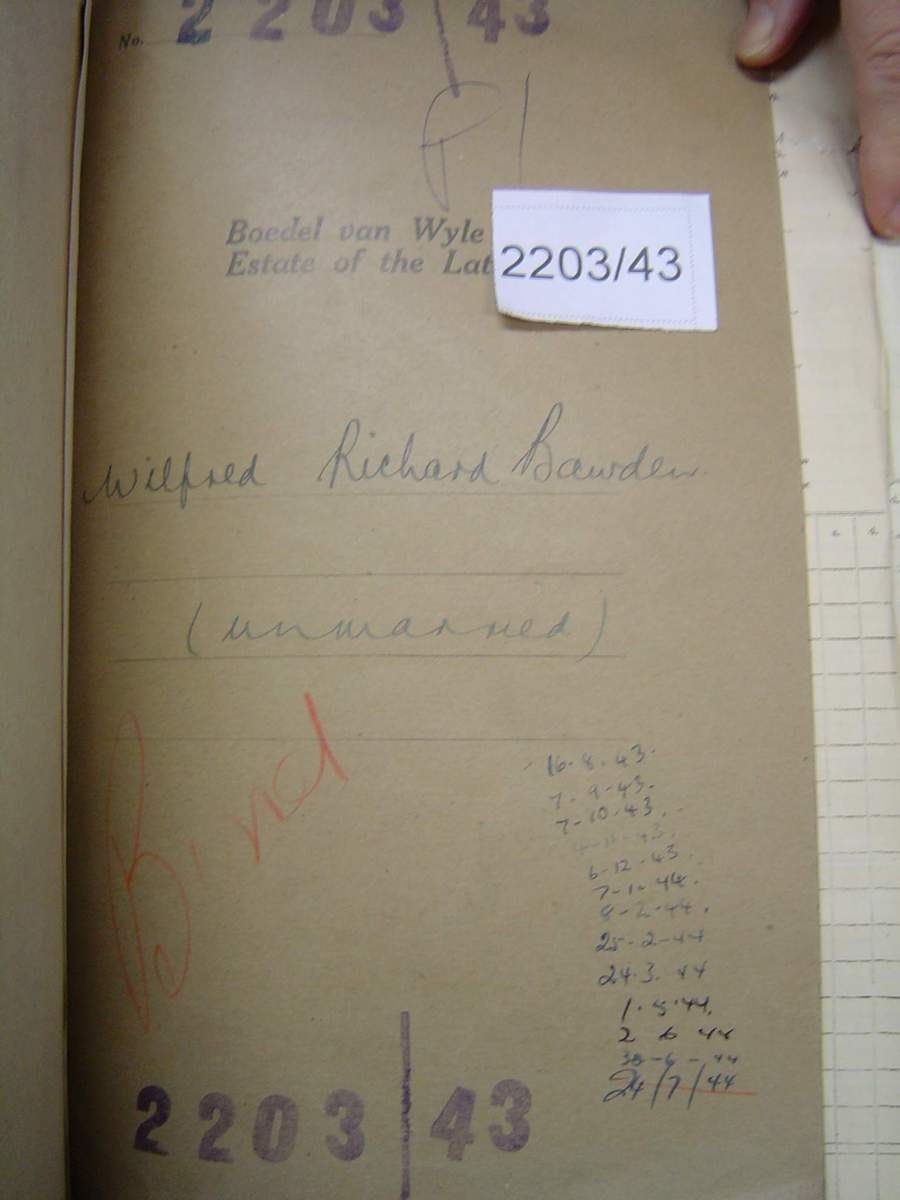 No. 2203/43
P1
Boedel van Wyle
Estate of the Lat
2203/43
Wilfred Richard Bawden
(unmarried)
Bind
16-8-43
7-9-43
7-10-43
6-12-43
7-1-44
8-2-44
25-2-44
24-3-44
1-5-44
2 6 44
30-6-44
24/7/44
2203/43